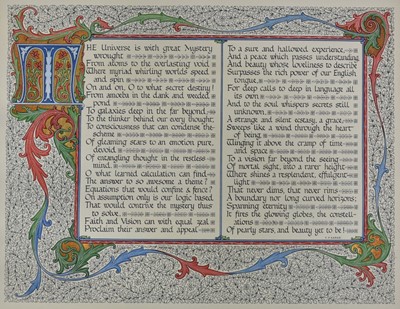 THE Universe is with great Mystery
wrought
From atoms to the everlasting void
Where myriad whirling worlds speed
and spin
On and on, O to what secret destiny!
From amoeba in the dank and weeded
pond
To galaxies deep in the far beyond,
To the thinker behind our every thought;
To consciousness that can condense the
scheme
Of gleaming stars to an emotion pure,
devoid
Of entangling thought in the restless
mind.
O what learned calculation can find
The answer to so awesome a theme!
Equations that would confine & fence!
On assumption only is our logic based,
That would contrive the mystery thus
to solve.
Faith and Vision can with equal zeal
Proclaim their answer and appeal
To a sure and hallowed experience,
And a peace which passes understanding
And beauty whose loveliness to describe
Surpasses the rich power of our English
tongue,
For deep calls to deep in language all
its own
And to the soul whispers secrets still
unknown,
A strange and silent ecstasy, a grace,
Sweeps like a wind through the heart
of being
Winging it above the cramp of time
and space
To a vision far beyond the seeing
Of mortal sight, into a rarer height
Where shines a resplendent, effulgent
light
That never dims, that never rims
A boundary nor long curved horizons;
Spanning eternity
It fires the glowing globes, the constell-
ations
Of pearly stars, and beauty yet to be!